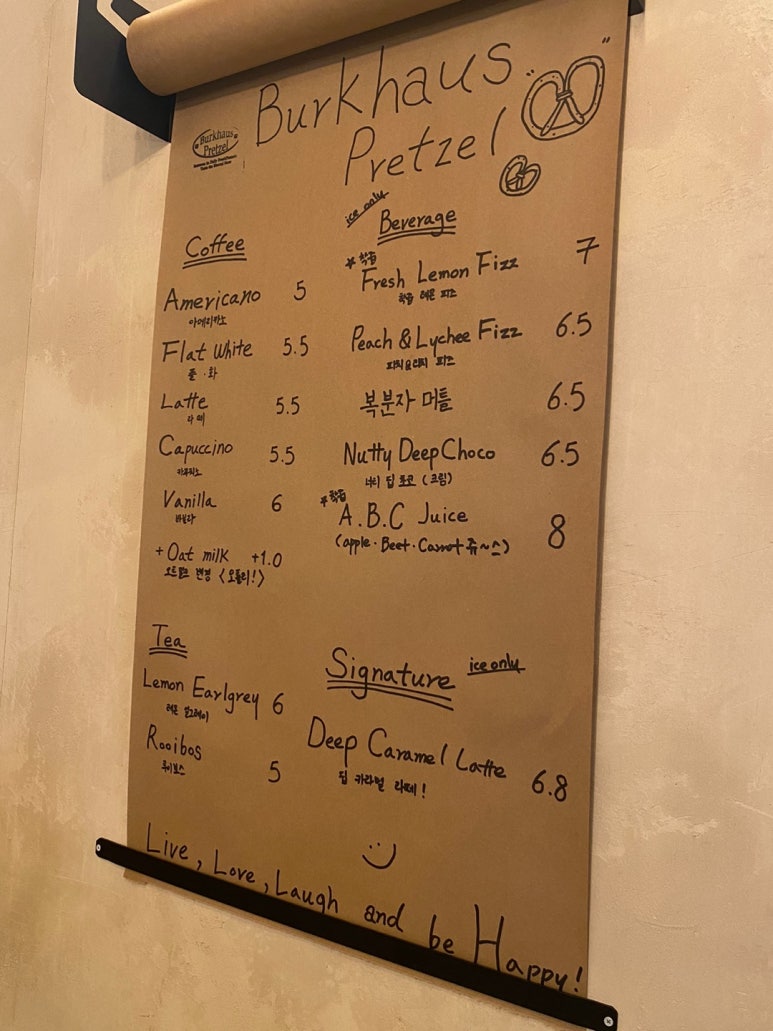 Burkhaus
Pretzel
Burkhaus
Pretzel
Coffee
Americano 5
아메리카노
Flat White 5.5
플·화
Latte 5.5
라떼
Capuccino 5.5
카푸치노
Vanilla 6
바닐라
+ Oat milk +1.0
오트밀크 변경 <오틀리!>
ice only
Beverage
Fresh Lemon Fizz 7
레몬 피즈
Peach & Lychee Fizz 6.5
피치&리치 피즈
복분자 머틀 6.5
Nutty Deep Choco 6.5
너티 딥 초코 (크림)
A.B.C Juice 8
(apple·Beet·Carrot 쥬~스)
Tea
Lemon Earlgrey 6
레몬 얼그레이
Rooibos 5
루이보스
Signature ice only
Deep Caramel Latte 6.8
딥 카라멜 라떼!
Live, Love, Laugh and be Happy!